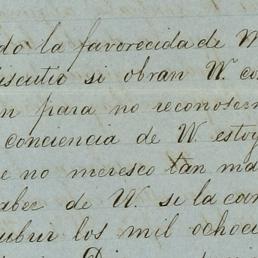 do la favorecida de
iscutio si obran V. co
n para no reconocer
conciencia de V. estoy
e no meresco tan ma
abec de V. si la can
ubrir los mil ochoci